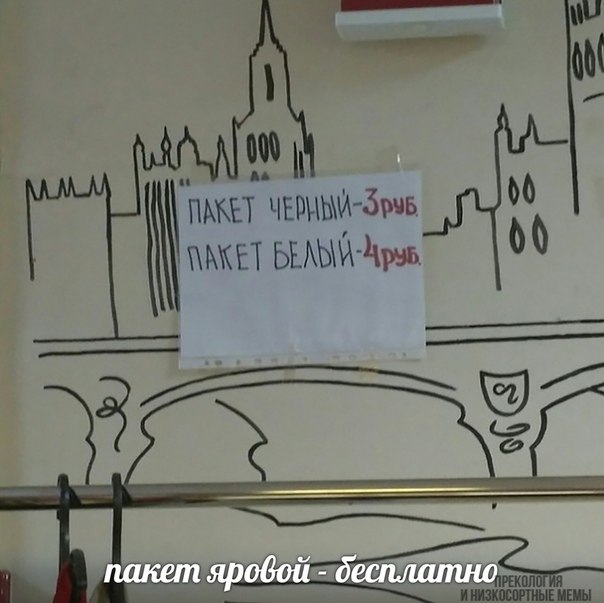 ПАКЕТ ЧЕРНЫЙ-3РУБ.
ПАКЕТ БЕЛЫЙ-4РУБ.
пакет яровой - бесплатно
ПРЕКОЛОГИЯ
И НИЗКОСОРТНЫЕ МЕМЫ